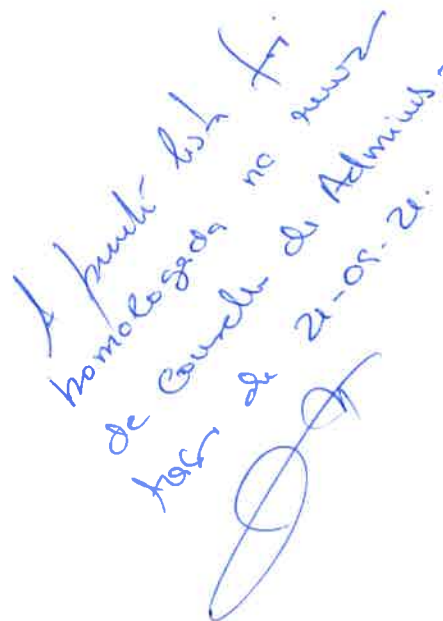 A presente lista foi
homologada na reunião
de Conselho de Adminis-
tração de 21-05-21.